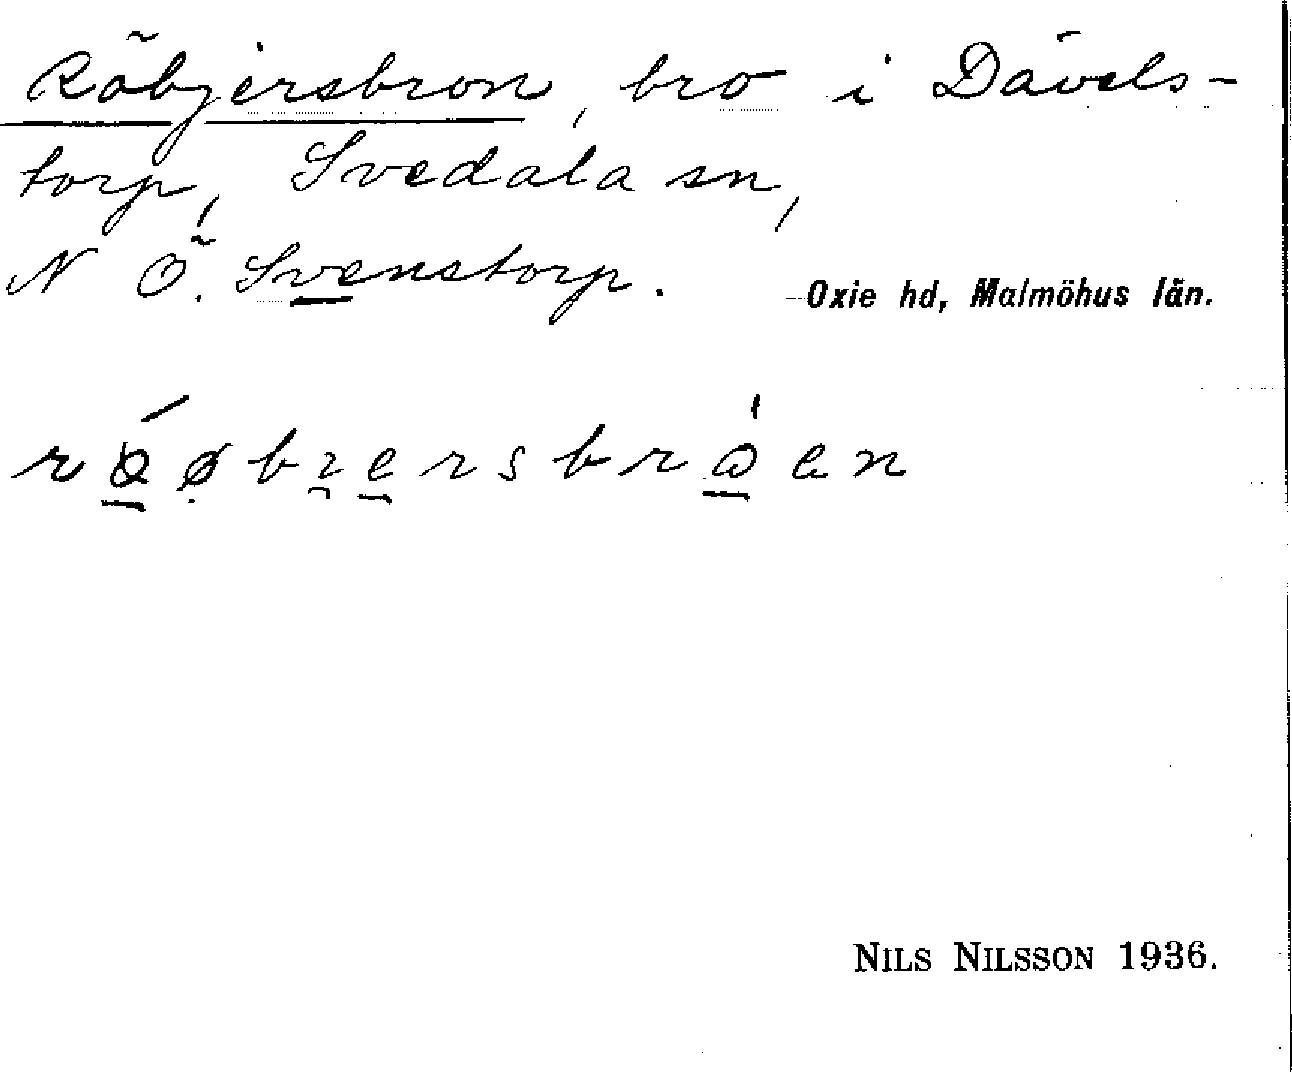 Röbjersbron, bro i Dävels-
torp, Svedala sn,
N Ö. Svenstorp. Oxie hd, Malmöhus län.
NILS NILSSON 1936.